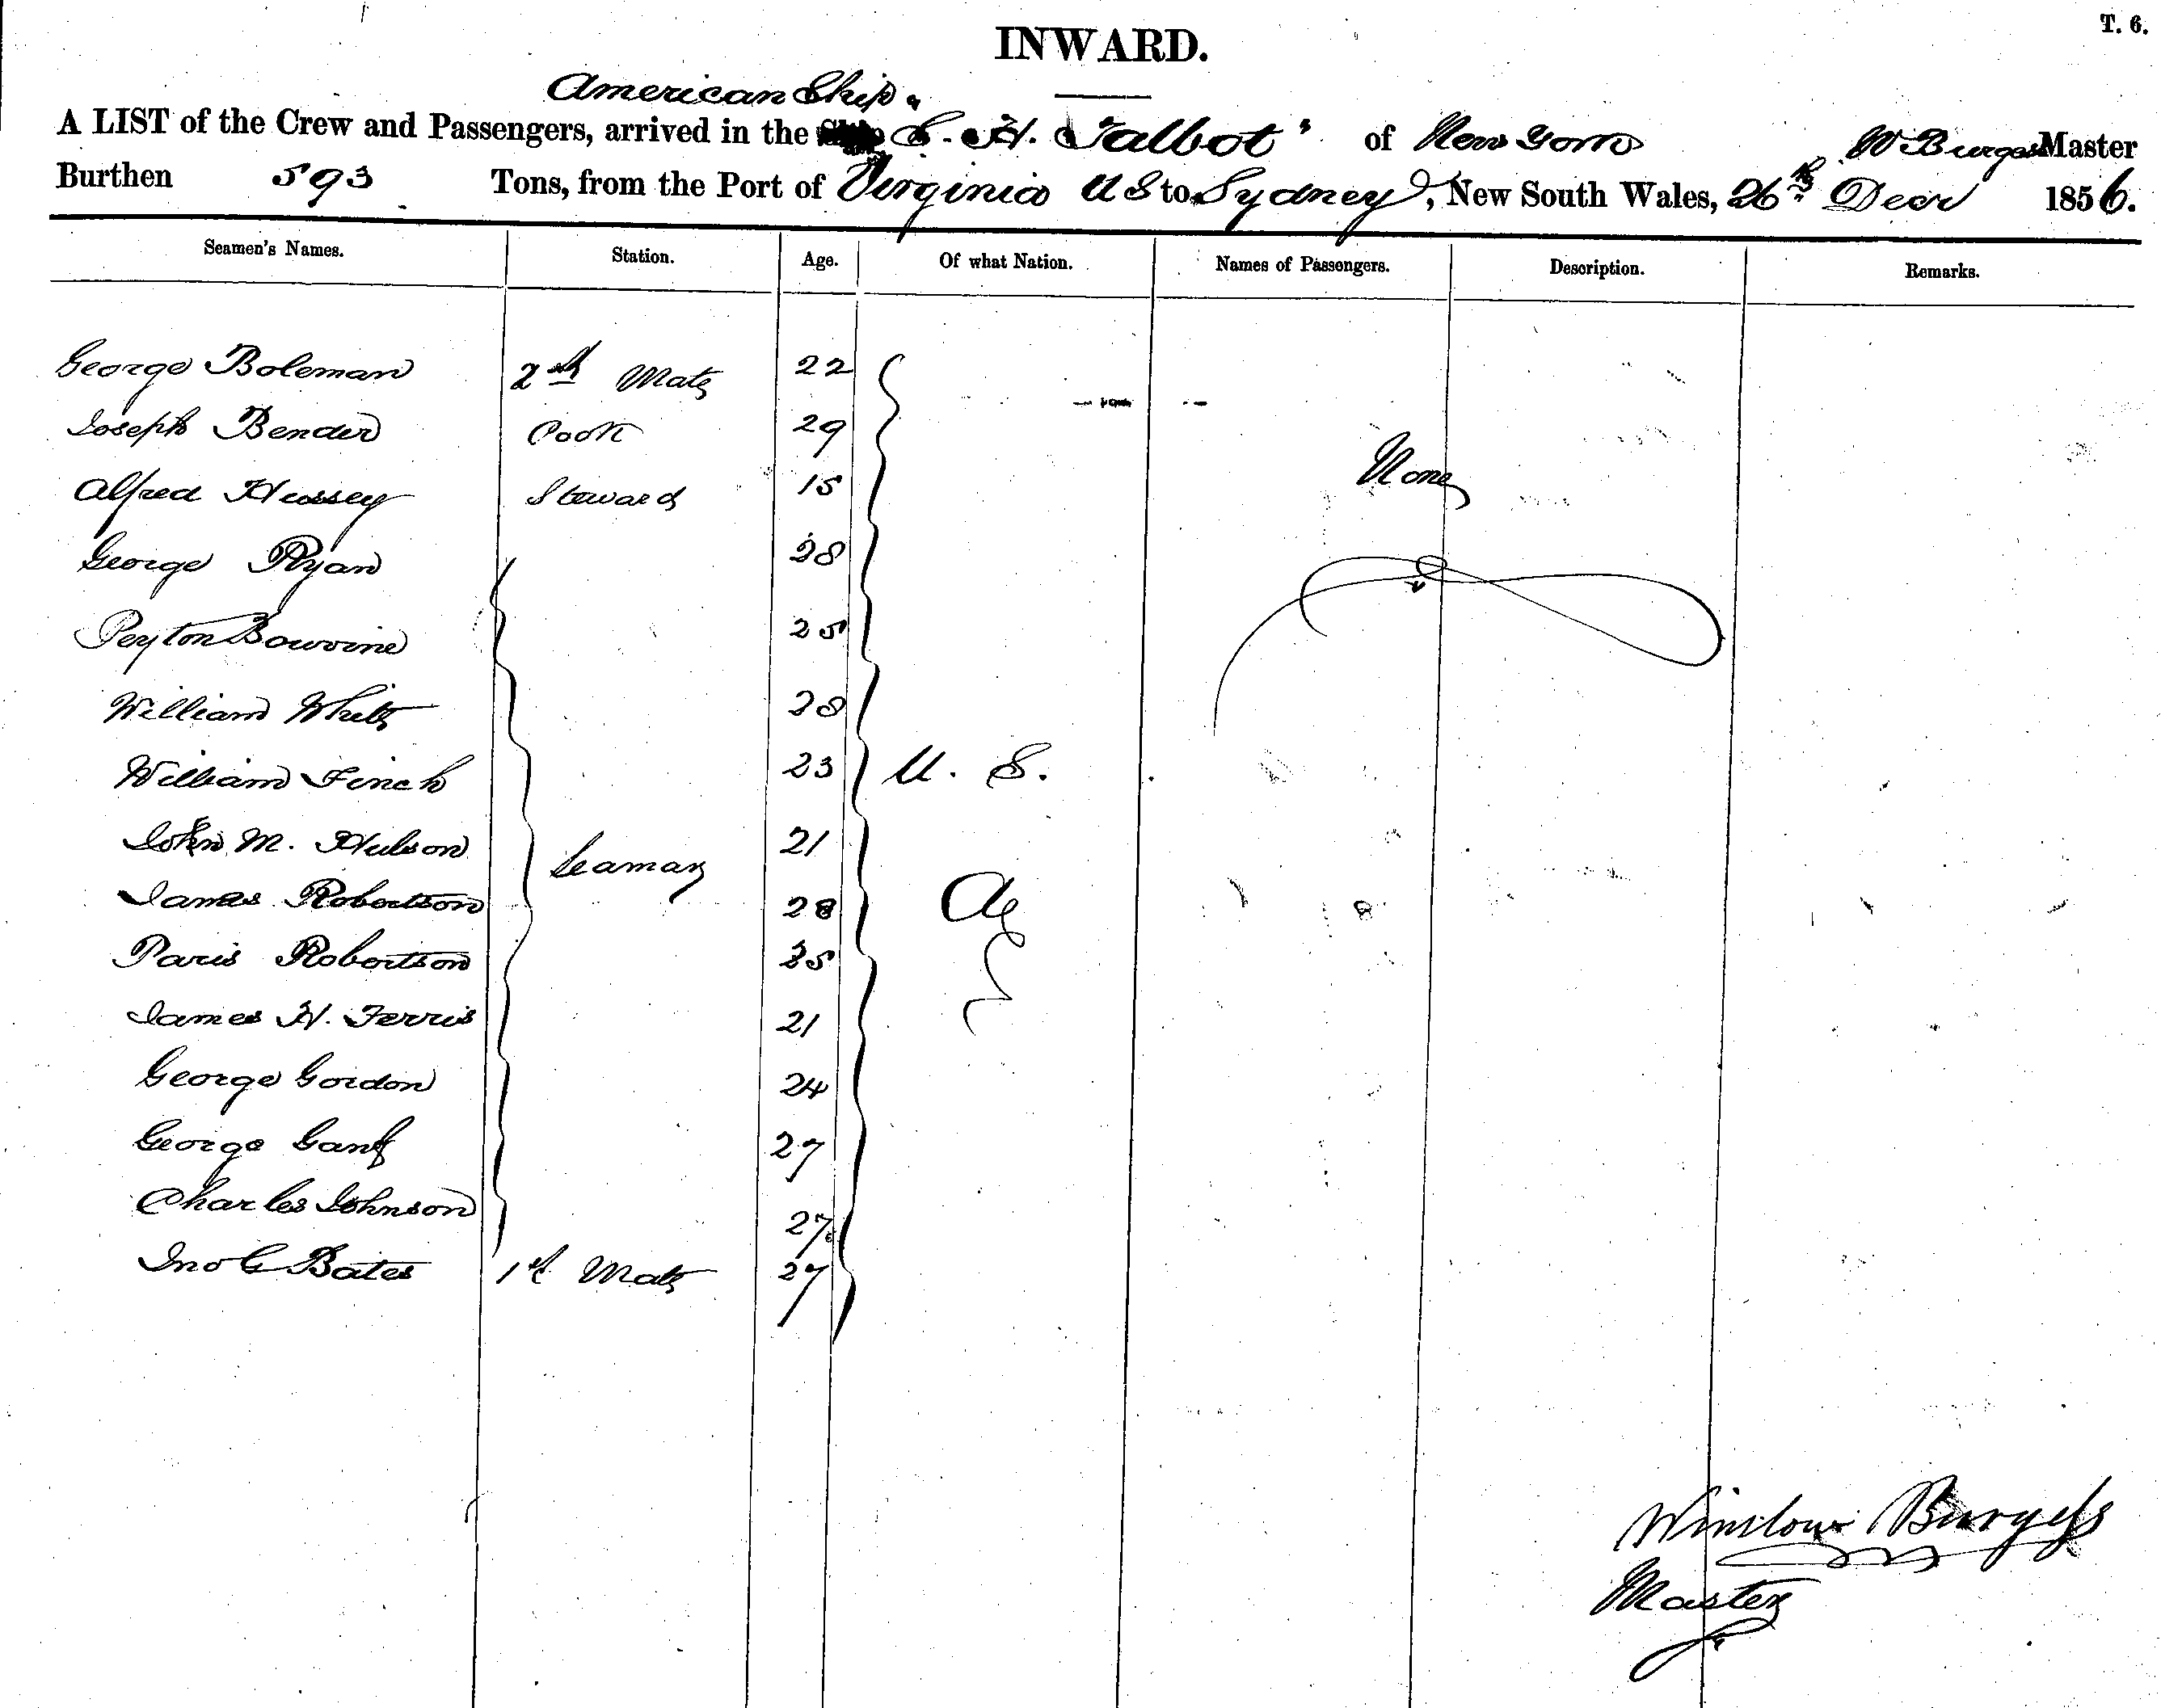 T. 6.
INWARD.
American Ship "
A LIST of the Crew and Passengers, arrived in the S. H. Talbot" of New York W Burgess Master
Burthen 593 Tons, from the Port of Virginia U S to Sydney, New South Wales, 26th Decr 1856.
Seamen's Names. Station. Age. Of what Nation. Names of Passengers. Description. Remarks.
George Boleman 2nd Mate 22
Joseph Bender Cook 29
Alfred Hussey Steward 15
None
George Ryan 28
Peyton Bowvine 25
William White 28
William Finch 23 U. S.
John M. Hulson 21
Seaman
James Robertson 28 A
Paris Robertson 35
James H. Ferris 21
George Gordon 24
George Gant 27
Charles Johnson 27
Jno G Bates 1st Mate 27
Winslow Burgess
Master